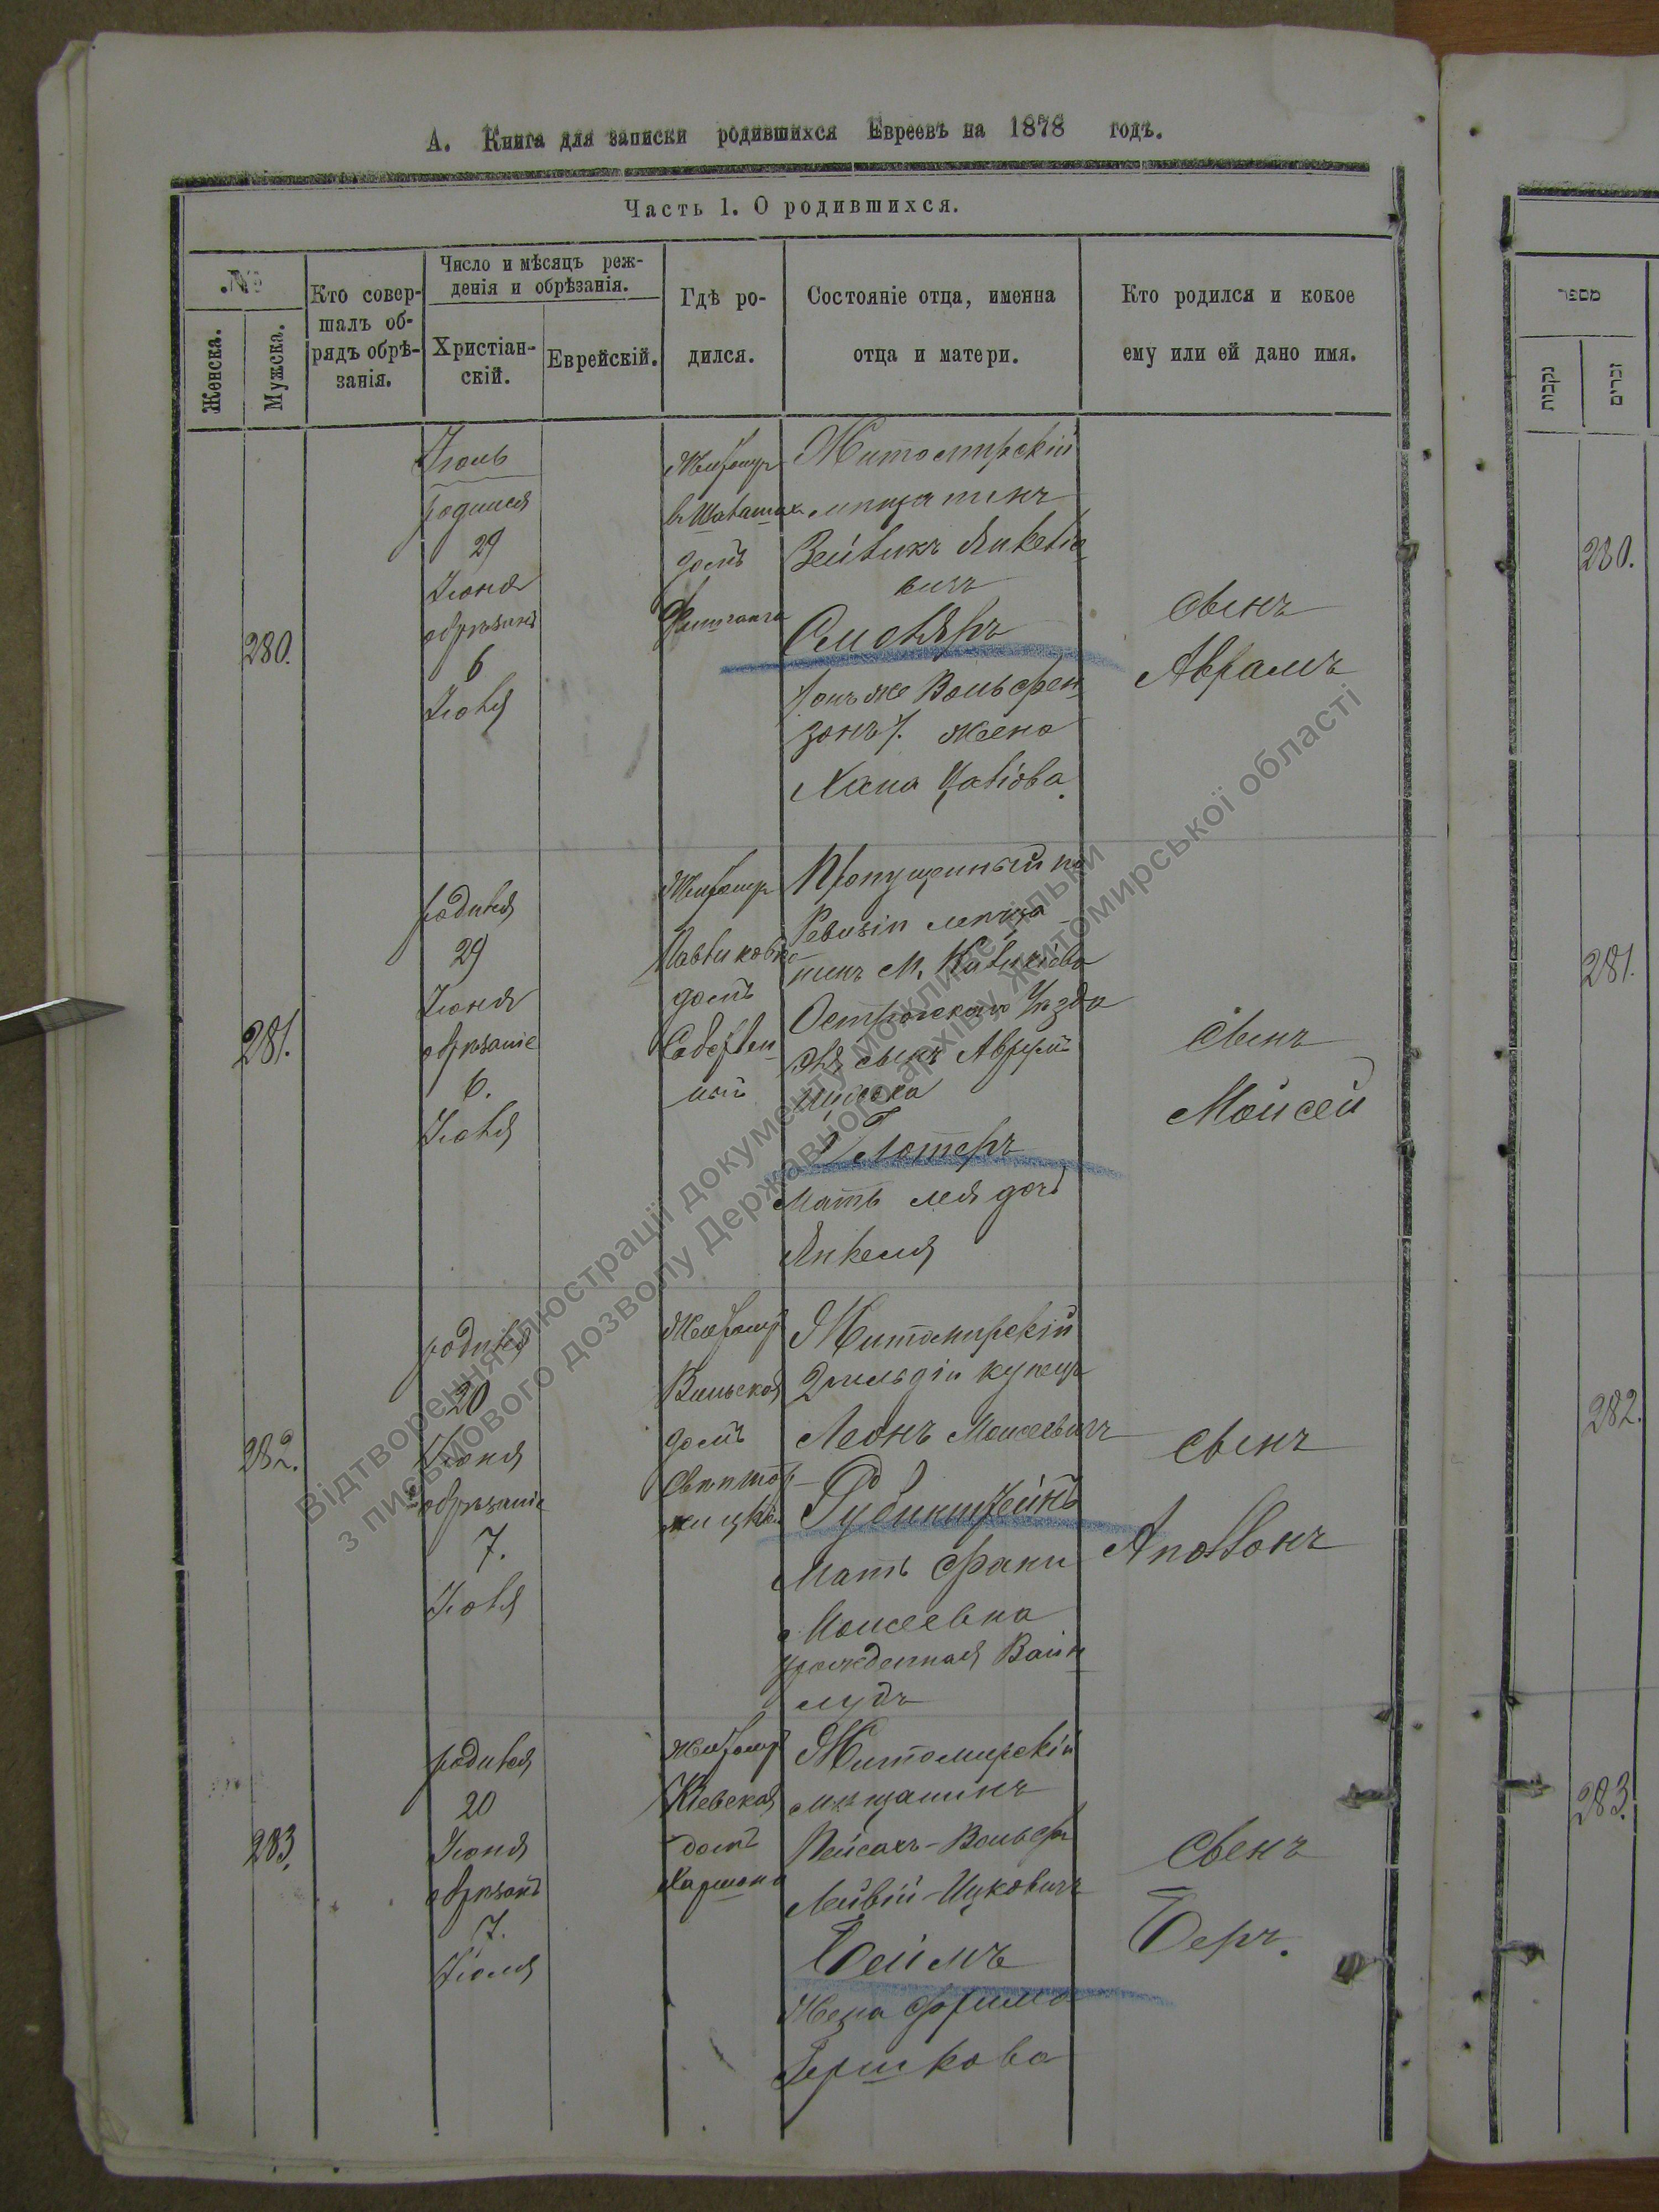 А. Книга для записки родившихся Евреевъ на 1878 годъ.
Часть 1. О родившихся.
№
Женска.
Мужска.
Кто совер-
шалъ об-
рядъ обрѣ-
занія.
Число и мѣсяцъ рож-
денія и обрѣзанія.
Христіан-
скій.
Еврейскій.
Гдѣ ро-
дился.
Состояніе отца, именна
отца и матери.
Кто родился и кокое
ему или ей дано имя.
280.
Іюль
родился
29
Іюня
обрѣзанъ
6
Іюля
Житомиръ
домъ
Житомирскій
мѣщанинъ
Зейликъ Янкеліо
вичъ
Смоляръ
онъ же Вольфен
зонъ). жена
Хана
сынъ
Аврамъ
281.
родился
29
Іюня
обрѣзаніе
6.
Іюля
Житомиръ
Павликовка
домъ
Собствен
ный
Пропущенный по
Ревизіи мѣща
нинъ м.
Острогскаго Уѣзда
сынъ Аврумъ
Ицкока
Глотеръ
Мать Лея дочь
Янкеля
сынъ
Мойсей
282.
родился
20
Іюня
обрѣзаніе
7.
Іюля
Житомиръ
Вильская
домъ
Житомирскій
2 гильдіи купецъ
Леонъ Моисеевичъ
Рубинштейнъ
Мать Фани
Моисеевна
рожденная Вайн
лудъ
сынъ
Аполлонъ
283.
родился
20
Іюня
обрѣзанъ
7.
Іюля
Житомиръ
Кіевская
домъ
Хармана
Житомирскій
мѣщанинъ
Пейсахъ-Вольфъ
Лейвій-Ицковичъ
Беймъ
Жена Фрима
Гершкова
сынъ
Беръ.
מספר
נקבות
זכרים
280.
281.
282.
283.
Відтворення ілюстрації документу можливе тільки
з письмового дозволу Державного архіву Житомирської області